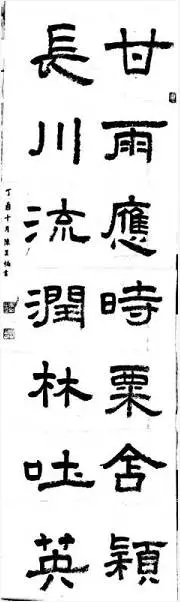 甘雨應時粟含穎
長川流潤林吐英
丁酉十月陳
書